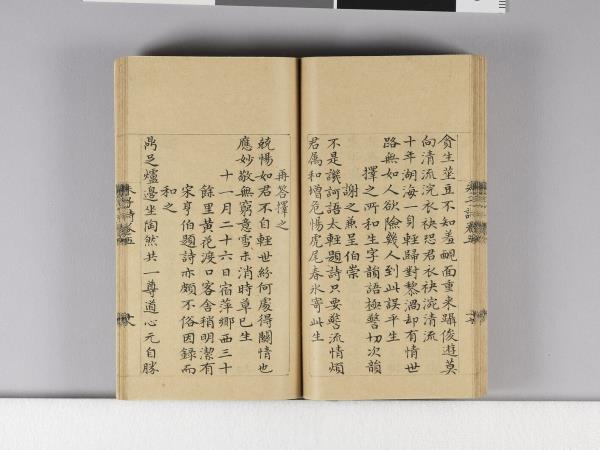 貪生莝豆不知羞靦面重来躡俊遊莫
向清流浣衣袂恐君衣袂涴清流
十年湖海一身輕歸對黎渦却有情世
路無如人欲險幾人到此誤平生
擇之所和生字韻語極警切次韻
謝之兼呈伯崇
不是譏訶語太輕題詩只要警流情煩
君屬和增危惕虎尾春氷寄此生
再答擇之
兢惕如君不自輕世紛何處得關情也
應妙敬無窮意雪未消時草已生
十一月二十六日宿萍鄉西三十
餘里黄花渡口客舍稍明潔有
宋亨伯題詩亦頗不俗因録而
和之
鼎足爐邊坐陶然共一尊道心元自勝